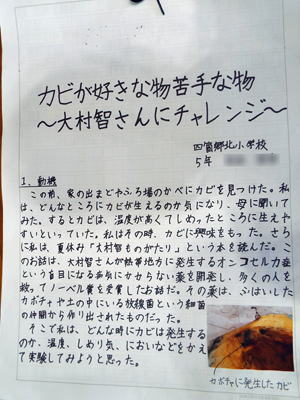 カビが好きな物苦手な物
〜大村智さんにチャレンジ〜
四箇郷北小学校
5年
I. 動機
この前、家の出まどやふろ場のかべにカビを見つけた。私
は、どんなところにカビが生えるのか気になり、母に聞いて
みた。するとカビは、温度が高くてしめったところに生えや
すいといっていた。私はその時、カビに興味をもった。さら
に私は、夏休み「大村智ものがたり」という本を読んだ。こ
のお話は、大村智さんが熱帯地方に発生するオンコセルカ症
という盲目になる病気にかからない薬を開発し、多くの人を
救ってノーベル賞を受賞したお話だ。その薬は、くさはいした
カボチャや土の中にいる放線菌という細菌
の仲間から作り出されたものだった。
そこで私は、どんな時にカビは発生する
のか、温度、しめり気、においなどをかえ
て実験してみようと思った。
カボチャに発生したカビ